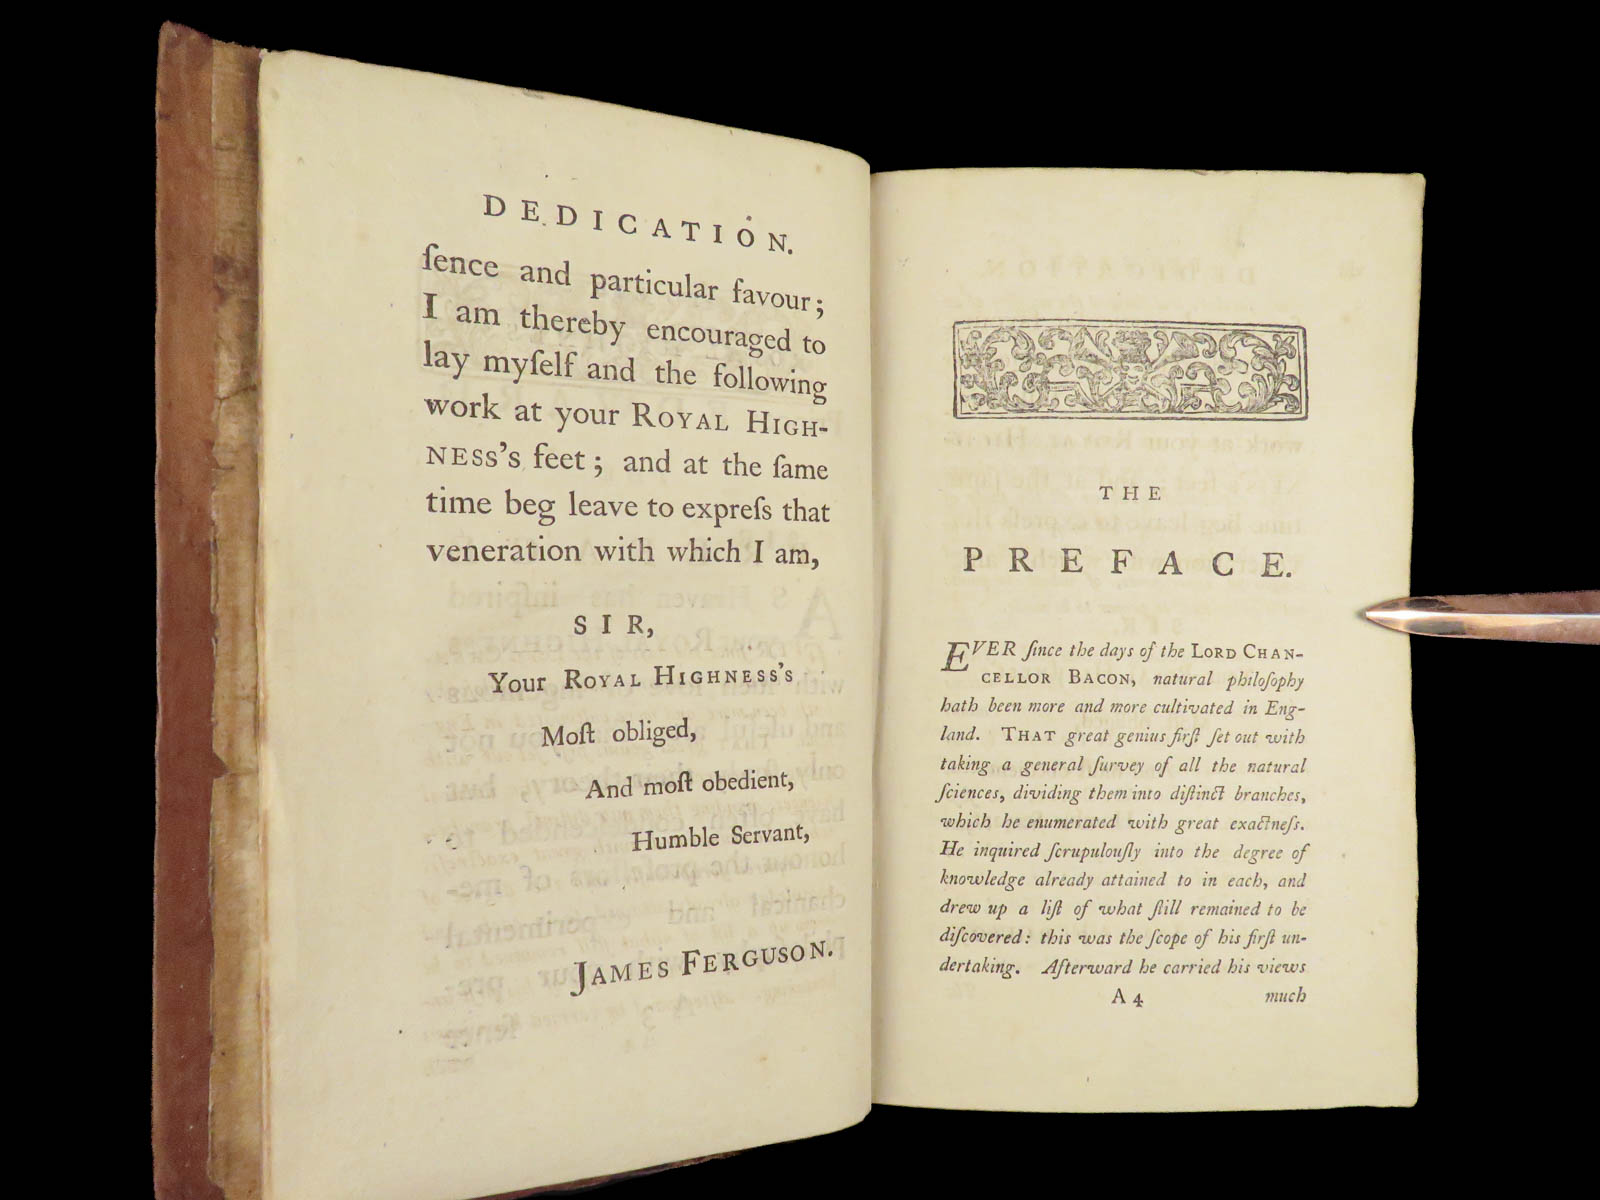 DEDICATION.
ſence and particular favour;
I am thereby encouraged to
lay myſelf and the following
work at your ROYAL HIGH-
NESS'S feet; and at the ſame
time beg leave to expreſs that
veneration with which I am,
SIR,
Your ROYAL HIGHNESS'S
Moſt obliged,
And moſt obedient,
Humble Servant,
JAMES FERGUSON.
THE
PREFACE.
EVER ſince the days of the LORD CHAN-
CELLOR BACON, natural philoſophy
hath been more and more cultivated in Eng-
land. THAT great genius firſt ſet out with
taking a general ſurvey of all the natural
ſciences, dividing them into diſtinct branches,
which he enumerated with great exactneſs.
He inquired ſcrupulouſly into the degree of
knowledge already attained to in each, and
drew up a liſt of what ſtill remained to be
diſcovered: this was the ſcope of his firſt un-
dertaking. Afterward he carried his views
A 4 much